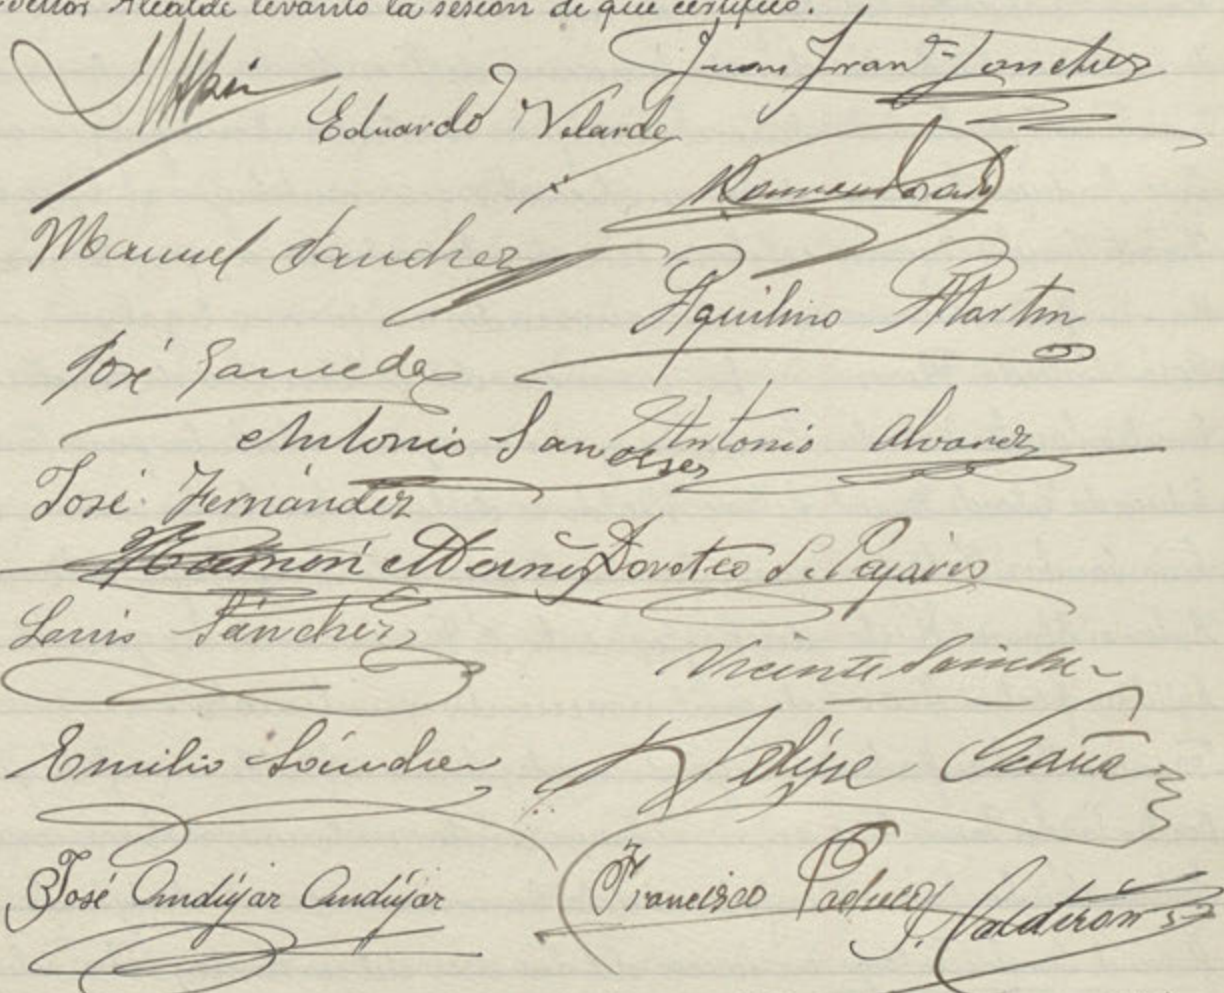 señor Alcalde levantó la sesión de que certifico.
Juan Fran Sanchez
Eduardo Velarde
Manuel Sanchez
Aquilino Martin
José
Antonio Sanchez Antonio Alvarez
José Fernández
Ramón Doroteo S. Pajares
Luis Sánchez
Vicente Sánchez
Emilio Sánchez Felipe Ocaña
José Andújar Andújar Francisco Pacheco
P. Calderón